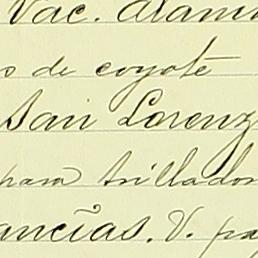 Vac. Alam
os de coyote
San Lorenz
para trillador
ancias. V. pa